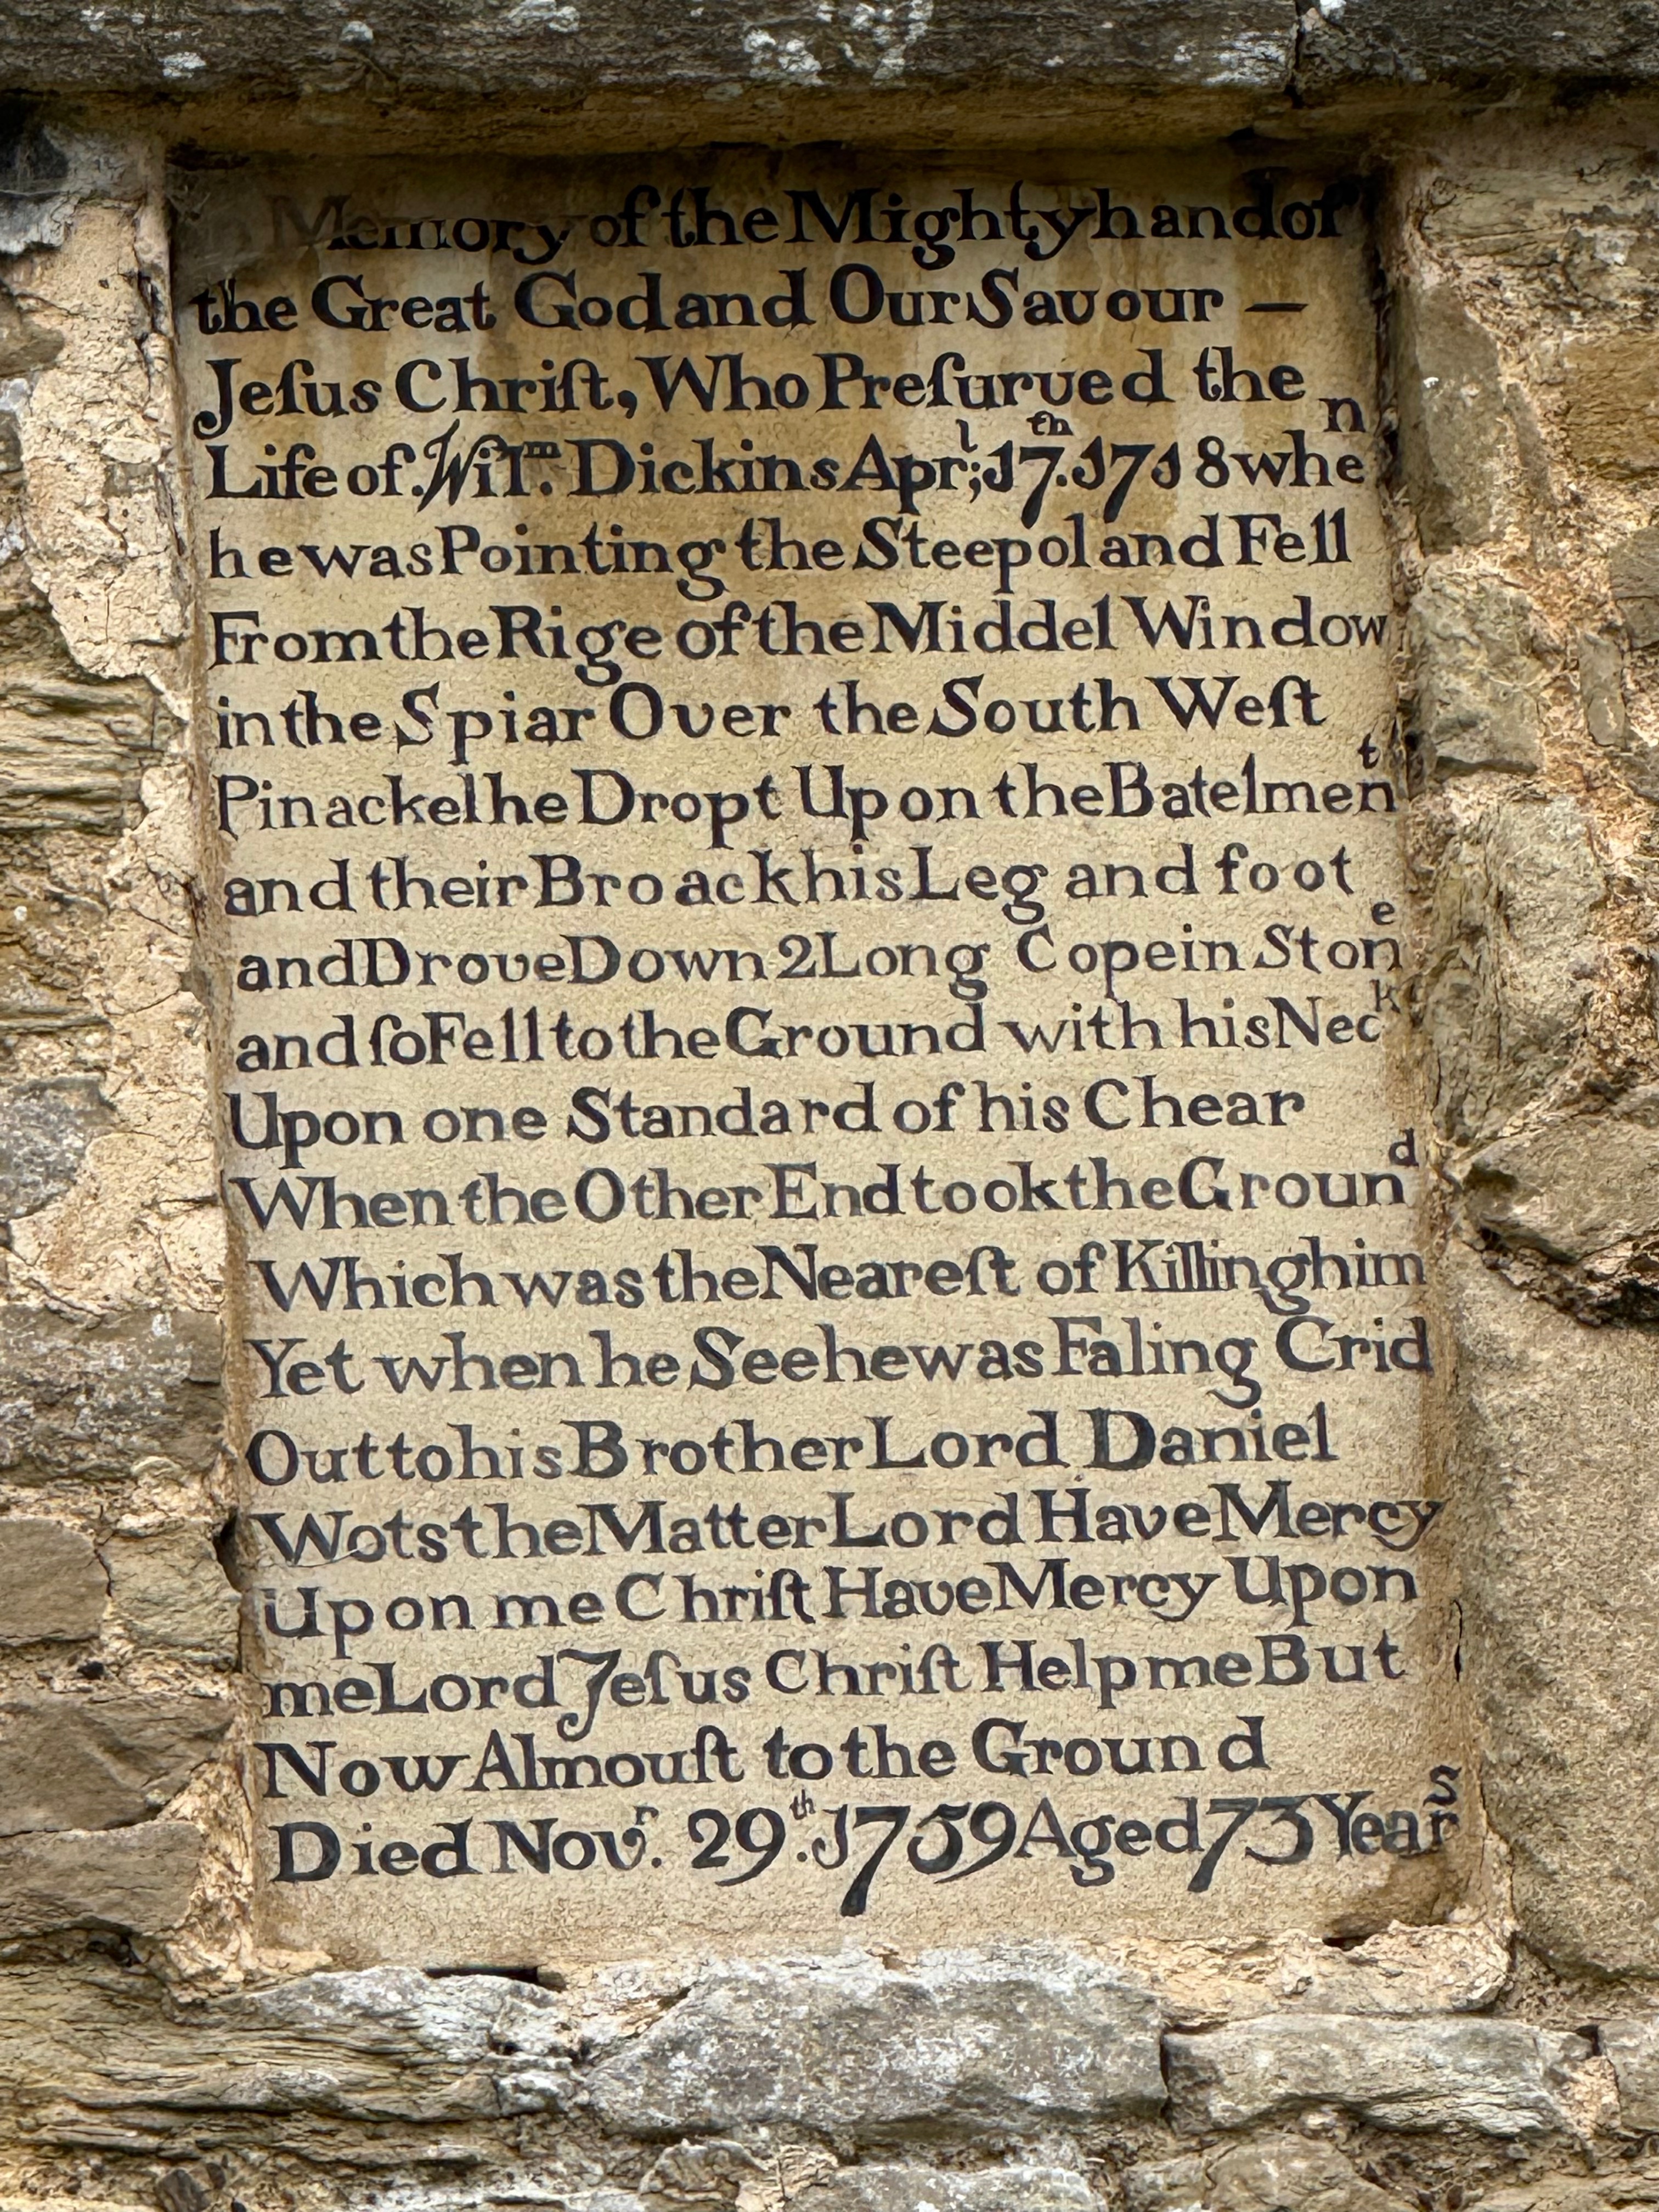 Memory of the Mighty hand of
the Great God and Our Savour —
Jeſus Chriſt, Who Preſurved the
Life of Wilm. Dickins Aprl; 17th. 1718 when
he was Pointing the Steepol and Fell
From the Rige of the Middel Window
in the Spiar Over the South Weſt
Pinackel he Dropt Upon the Batelment
and their Broack his Leg and foot
and Drove Down 2 Long Copein Stone
and ſo Fell to the Ground with his Neck
Upon one Standard of his Chear
When the Other End took the Ground
Which was the Neareſt of Killing him
Yet when he See he was Faling Crid
Out to his Brother Lord Daniel
Wots the Matter Lord Have Mercy
Upon me Chriſt Have Mercy Upon
me Lord Jeſus Chriſt Help me But
Now Almouſt to the Ground
Died Novr. 29th. 1759 Aged 73 Years